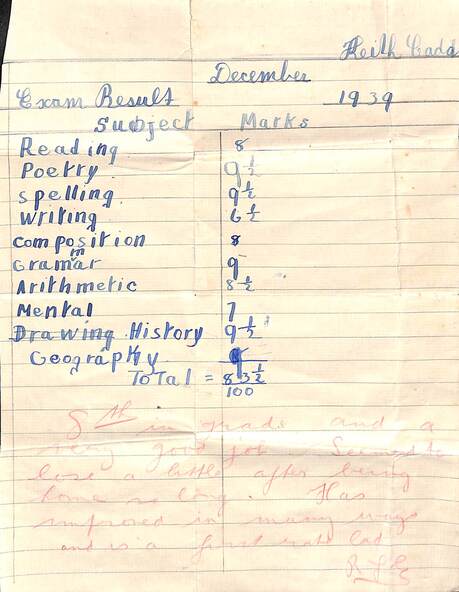 Keith Cadd
December
Exam Result 1939
Subject Marks
Reading 8
Poetry 9 1/2
Spelling 9 1/2
Writing 6 1/2
Composition 8
Grammar 9
Arithmetic 8 1/2
Mental 7
Drawing History 9 1/2
Geography
Total = 83 1/2
100
8th in grade and a
very good job Seems to
lose a little after being
home so long. Has
improved in many ways
and is a first rate lad